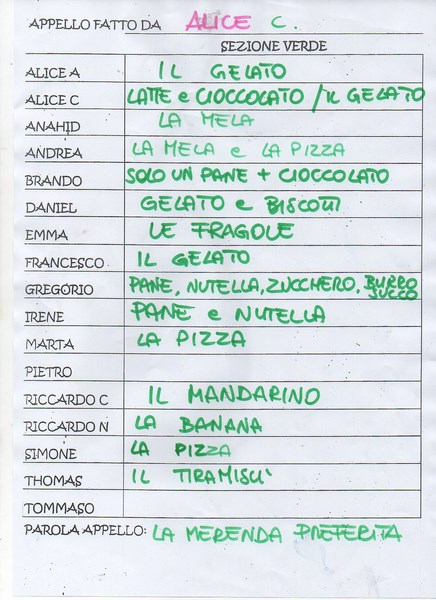 APPELLO FATTO DA ALICE C.
SEZIONE VERDE
ALICE A IL GELATO
ALICE C LATTE e CIOCCOLATO / IL GELATO
ANAHID LA MELA
ANDREA LA MELA e LA PIZZA
BRANDO SOLO UN PANE + CIOCCOLATO
DANIEL GELATO e BISCOTTI
EMMA LE FRAGOLE
FRANCESCO IL GELATO
GREGORIO PANE, NUTELLA, ZUCCHERO, BURRO SUCCO
IRENE PANE e NUTELLA
MARTA LA PIZZA
PIETRO
RICCARDO C IL MANDARINO
RICCARDO N LA BANANA
SIMONE LA PIZZA
THOMAS IL TIRAMISU'
TOMMASO
PAROLA APPELLO: LA MERENDA PREFERITA